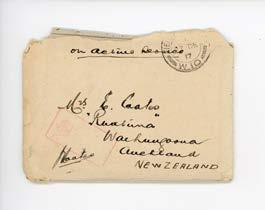 on active service
W.10
17
Mrs E. Coates
"Ruatuna"
Auckland
NEW ZEALAND
Coates